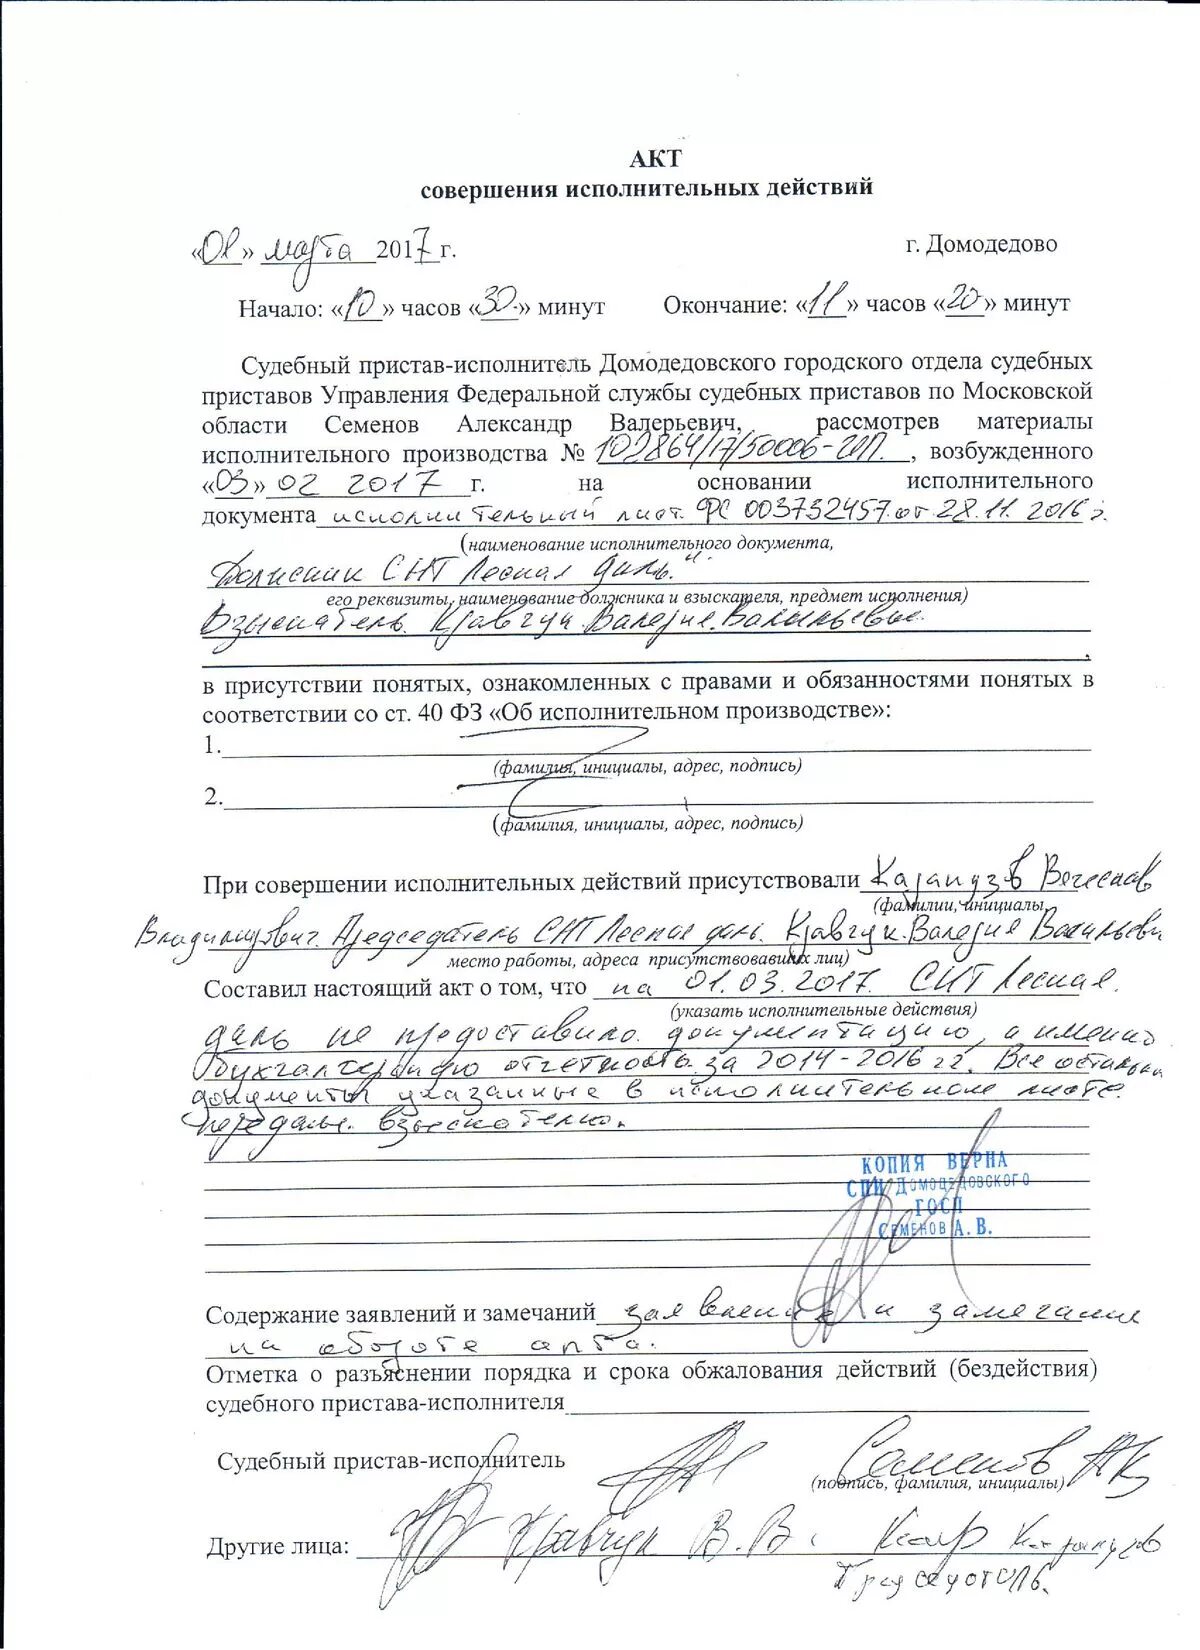 АКТ
совершения исполнительных действий
«01» марта 2017 г. г. Домодедово
Начало: «10» часов «30» минут Окончание: «11» часов «20» минут
Судебный пристав-исполнитель Домодедовского городского отдела судебных
приставов Управления Федеральной службы судебных приставов по Московской
области Семенов Александр Валерьевич, рассмотрев материалы
исполнительного производства № 102864/17/50006-ИП. , возбужденного
«03» 02 2017 г. на основании исполнительного
документа исполнительный лист. ФС 003732457. от 28.11. 2016 г.
(наименование исполнительного документа,
Должник СНТ Лесная даль."
его реквизиты, наименование должника и взыскателя, предмет исполнения)
Взыскатель. Кравчук. Валерия. Васильевна.
,
в присутствии понятых, ознакомленных с правами и обязанностями понятых в
соответствии со ст. 40 ФЗ «Об исполнительном производстве»:
1.
(фамилия, инициалы, адрес, подпись)
2.
(фамилия, инициалы, адрес, подпись)
При совершении исполнительных действий присутствовали Вячеслав
(фамилии, инициалы,
Владимирович. Председатель СНТ Лесная даль. Кравчук. Валерия
место работы, адреса присутствовавших лиц)
Составил настоящий акт о том, что на 01.03.2017. СНТ Лесная.
(указать исполнительные действия)
даль не предоставило. документацию, а именно
бухгалтерскую отчетность за 2014-2016 гг. Все остальные
документы указанные в исполнительном листе.
переданы. взыскателю.
КОПИЯ ВЕРНА
СПИ ДОМОДЕДОВСКОГО
ГОСП
СЕМЕНОВ А. В.
Содержание заявлений и замечаний заявление и замечание
на обороте акта.
Отметка о разъяснении порядка и срока обжалования действий (бездействия)
судебного пристава-исполнителя
Судебный пристав-исполнитель Семенов
(подпись, фамилия, инициалы)
Другие лица: Кравчук В. В.
Председатель.